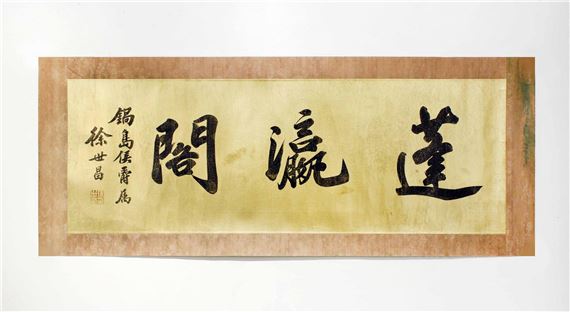 蓬瀛閣
鍋島侯爵屬
徐世昌